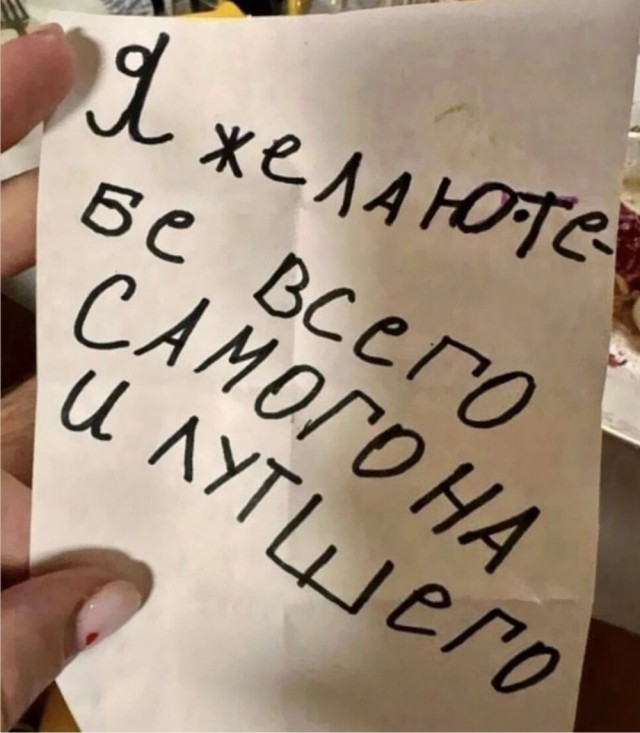 Я желаю те-
бе всего
САМОГОНА
и лутшего